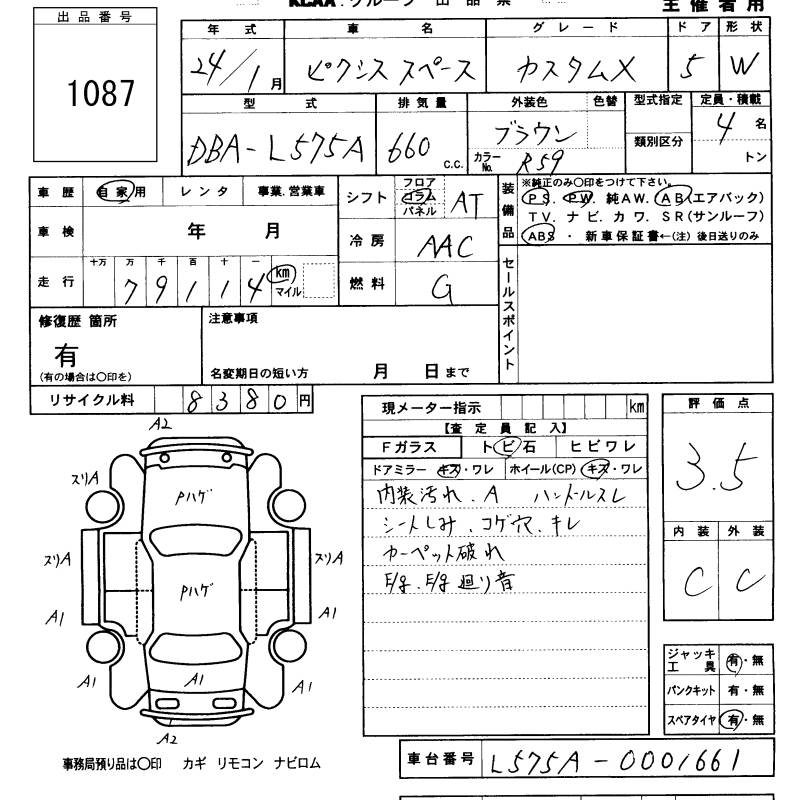 KCAA.グループ 出品票
主催者用
出品番号
1087
年式 車名 グレード ドア 形状
24/1月 ピクシススペース カスタムX 5 W
型式 排気量 外装色 色替 型式指定 定員・積載
DBA-L575A 660 c.c. ブラウン カラーNo. R59 類別区分 4名
トン
車歴 自家用 レンタ 事業.営業車
シフト フロア コラム パネル AT
装備品 ※純正のみ〇印をつけて下さい。
PS. PW. 純AW. AB(エアバック)
TV. ナビ. カワ. SR(サンルーフ)
ABS ・ 新車保証書←(注) 後日送りのみ
車検 年 月
冷房 AAC
走行 十万 万 千 百 十 一
79114 km マイル
燃料 G
セールスポイント
修復歴 箇所
有
(有の場合は〇印を)
注意事項
名変期日の短い方 月 日まで
リサイクル料 8380円
現メーター指示 km
【査定員記入】
Fガラス トビ石 ヒビワレ
ドアミラー キズ・ワレ ホイール(CP) キズ・ワレ
内装汚れ. A ハンドルスレ
シートしみ. コゲ穴. キレ
カーペット破れ
E/g. E/g 廻り音
評価点
3.5
内装 外装
C C
ジャッキ工具 有・無
パンクキット 有・無
スペアタイヤ 有・無
A2
スリA
Pハゲ
スリA
スリA
Pハゲ
A1
A1
A1
A1
A1
A2
事務局預り品は〇印 カギ リモコン ナビロム
車台番号 L575A-0001661